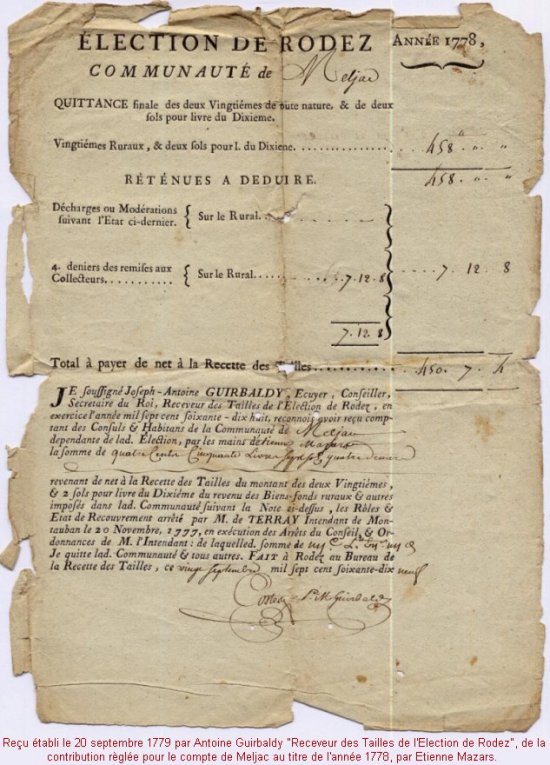 ÉLECTION DE RODEZ ANNÉE 1778,
COMMUNAUTÉ de Meljac
QUITTANCE finale des deux Vingtiémes de toute nature, & de deux
sols pour livre du Dixieme.
Vingtiémes Ruraux, & deux sols pour l. du Dixiene. . . . 458 " "
458 " "
RÉTENUES A DEDUIRE.
Décharges ou Modérations
suivant l'Etat ci-dernier. { Sur le Rural. . . . . . .
4. deniers des remises aux
Collecteurs. . . . . . . . . . { Sur le Rural. . . . . . . . 7. 12. 8 } . . . . 7. 12. 8
7. 12. 8
Total à payer de net à la Recette des Tailles. . . . . . . 450. 7. 4
JE soussigné Joseph-Antoine GUIRBALDY, Ecuyer, Conseiller,
Secretaire du Roi, Receveur des Tailles de l'Élection de Rodez, en
exercice l'année mil sept cent soixante-dix huit, reconnois avoir reçu comp-
tant des Consuls & Habitans de la Communauté de Meljac
dependante de lad. Election, par les mains de etienne Mazars
la somme de quatre Cents Cinquante Livres sept s. quatre deniers
revenant de net à la Recette des Tailles du montant des deux Vingtiémes,
& 2 sols pour livre du Dixiéme du revenu des Biens-fonds ruraux & autres
imposés dans lad. Communauté suivant la Note ci-dessus, les Rôles &
Etat de Recouvrement arrêté par M. de TERRAY Intendant de Mon-
tauban le 20 Novembre, 1777, en exécution des Arrêts du Conseil, & Or-
donnances de M. l'Intendant: de laquelle d. somme de
Je quitte lad. Communauté & tous autres. FAIT à Rodez au Bureau de
la Recette des Tailles, ce vingt septembre mil sept cent soixante-dix neuf
Guirbaldy
Reçu établi le 20 septembre 1779 par Antoine Guirbaldy "Receveur des Tailles de l'Election de Rodez", de la
contribution règlée pour le compte de Meljac au titre de l'année 1778, par Etienne Mazars.